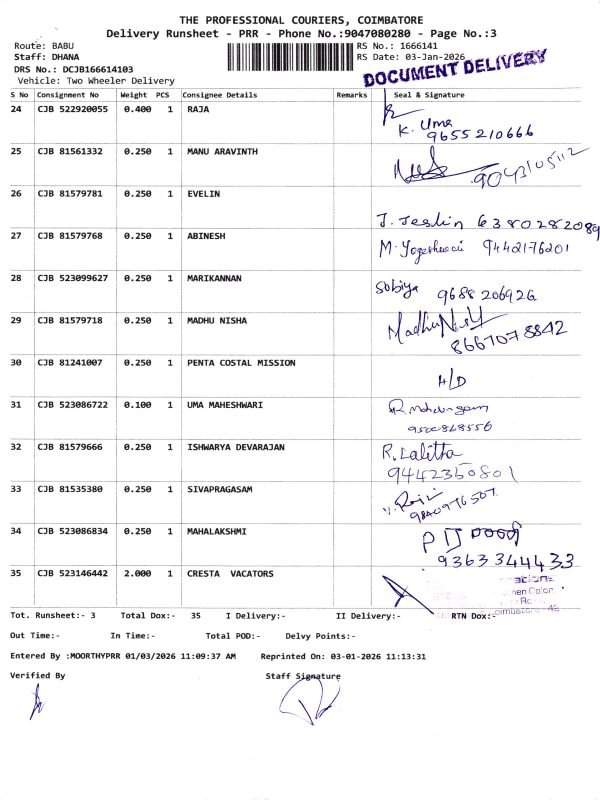 THE PROFESSIONAL COURIERS, COIMBATORE
Delivery Runsheet - PRR - Phone No.:9047080280 - Page No.:3
Route: BABU
Staff: DHANA
DRS No.: DCJB166614103
Vehicle: Two Wheeler Delivery
RS No.: 1666141
RS Date: 03-Jan-2026
DOCUMENT DELIVERY
S No Consignment No Weight PCS Consignee Details Remarks Seal & Signature
24 CJB 522920055 0.400 1 RAJA
K. Uma
9655210666
25 CJB 81561332 0.250 1 MANU ARAVINTH
9043105112
26 CJB 81579781 0.250 1 EVELIN
J. Jeslin 6380282089
27 CJB 81579768 0.250 1 ABINESH
M. Yogeshwari 9442176201
28 CJB 523099627 0.250 1 MARIKANNAN
Sobiya 9688206926
29 CJB 81579718 0.250 1 MADHU NISHA
8667078842
30 CJB 81241007 0.250 1 PENTA COSTAL MISSION
H/D
31 CJB 523086722 0.100 1 UMA MAHESHWARI
9500868556
32 CJB 81579666 0.250 1 ISHWARYA DEVARAJAN
R. Lalitha
9442350801
33 CJB 81535380 0.250 1 SIVAPRAGASAM
9840976507
34 CJB 523086834 0.250 1 MAHALAKSHMI
9363344433
35 CJB 523146442 2.000 1 CRESTA VACATORS
Tot. Runsheet:- 3 Total Dox:- 35 I Delivery:- II Delivery:- RTN Dox:-
Out Time:- In Time:- Total POD:- Delvy Points:-
Entered By :MOORTHYPRR 01/03/2026 11:09:37 AM Reprinted On: 03-01-2026 11:13:31
Verified By Staff Signature